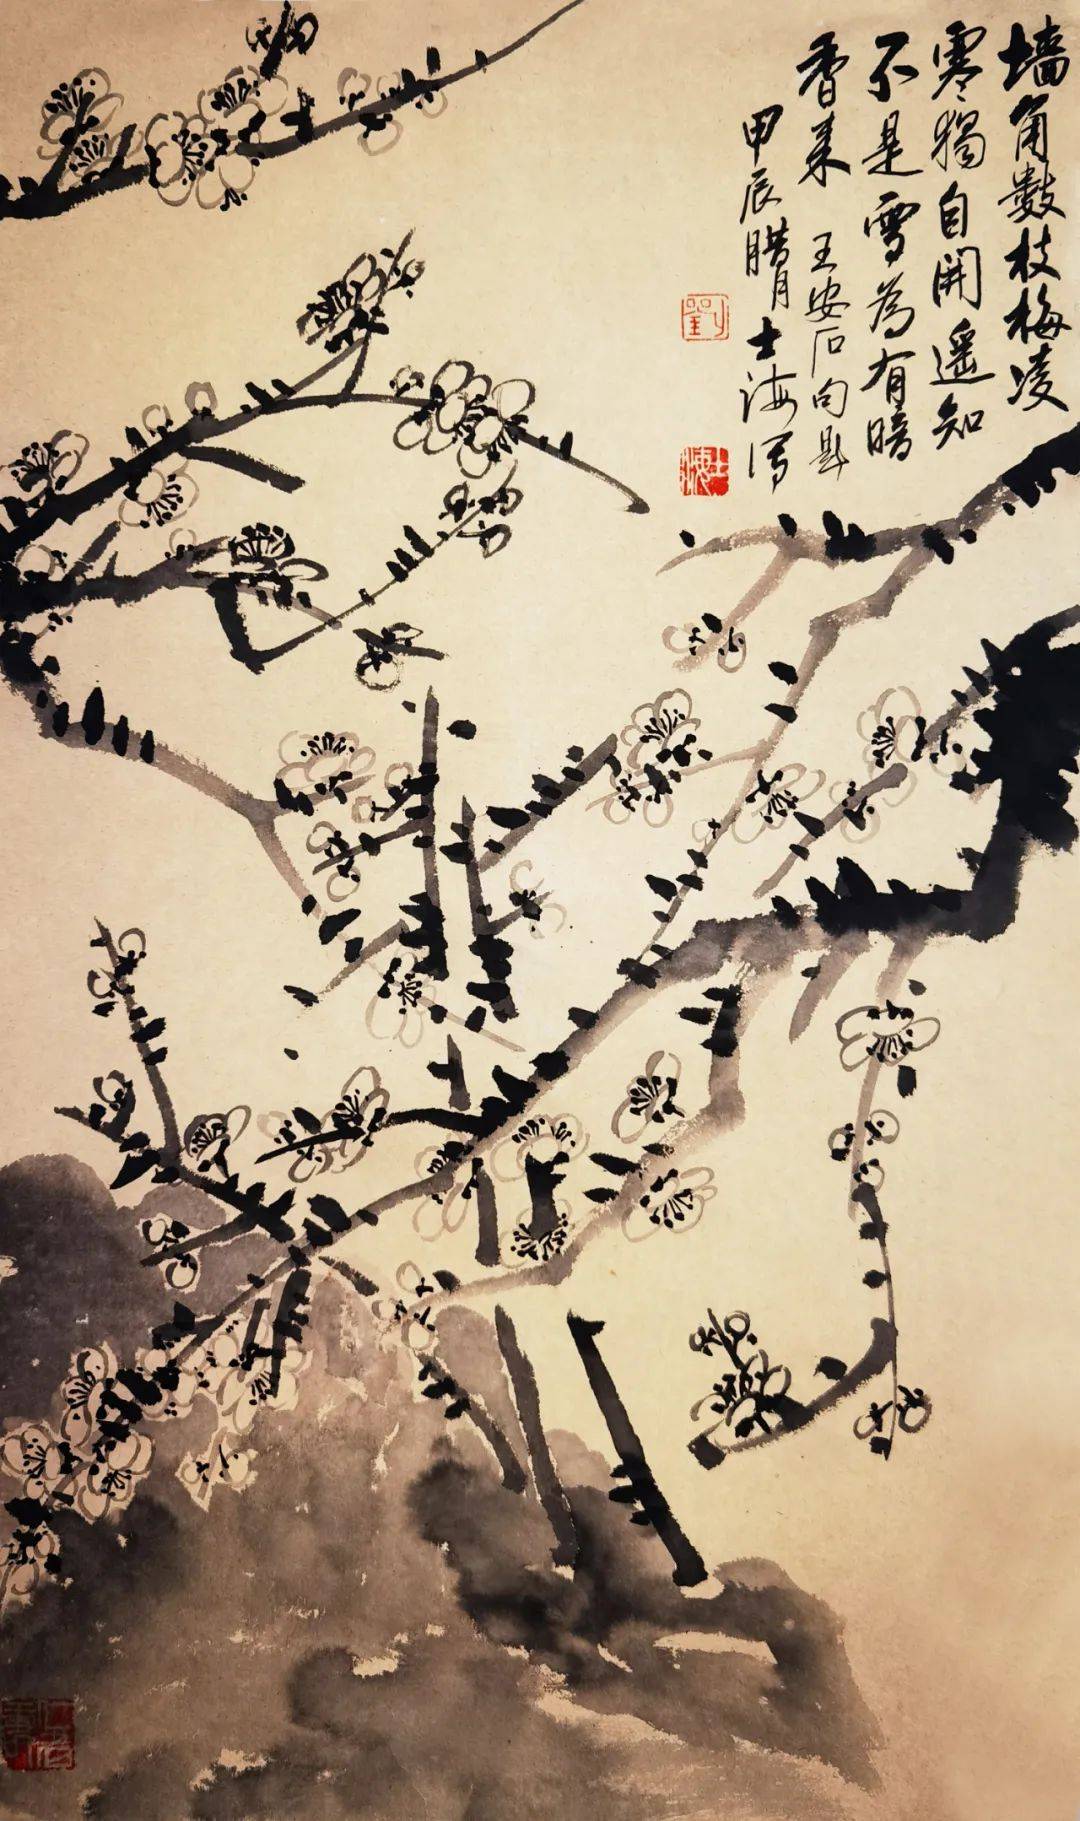 墙角数枝梅凌
寒獨自開遥知
不是雪為有暗
香来 王安石句题
甲辰腊月士海写
劉
士海